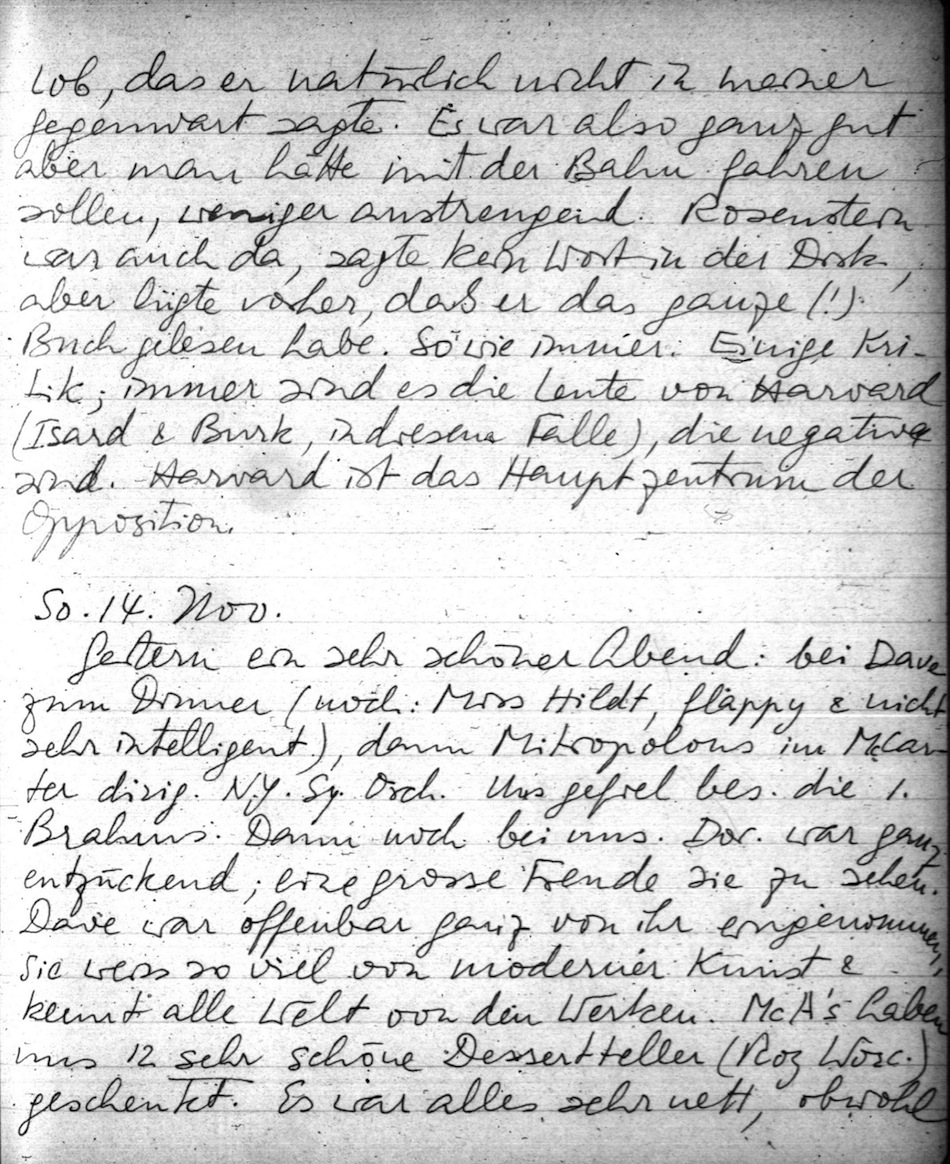 Lob, das er natürlich nicht in meiner
Gegenwart sagte. Es war also ganz gut
aber man hätte mit der Bahn fahren
sollen, weniger anstrengend. Rosenstein
war auch da, sagte kein Wort in der Disk.,
aber lügte vorher, daß er das ganze (!)
Buch gelesen habe. So wie immer. Einige Kri-
tik; immer sind es die Leute von Harvard
(Isard & Burk, in diesem Falle), die negative
sind. Harvard ist das Hauptzentrum der
Opposition.
So. 14. Nov.
Gestern ein sehr schöner Abend: bei Dave
zum Dinner (noch: Miss Hildt, flappy & nicht
sehr intelligent), dann Mitropolous im McCar-
ter dirig. N.Y. Sy. Orch. Uns gefiel bes. die 1.
Brahms. Dann noch bei uns. Dor. war ganz
entzückend; eine grosse Freude sie zu sehen.
Dave war offenbar ganz von ihr eingenommen,
sie weiss so viel von moderner Kunst &
kennt alle Welt von den Werken. McA's haben
uns 12 sehr schöne Dessertteller (Roy Worc.)
geschenkt. Es war alles sehr nett, obwohl